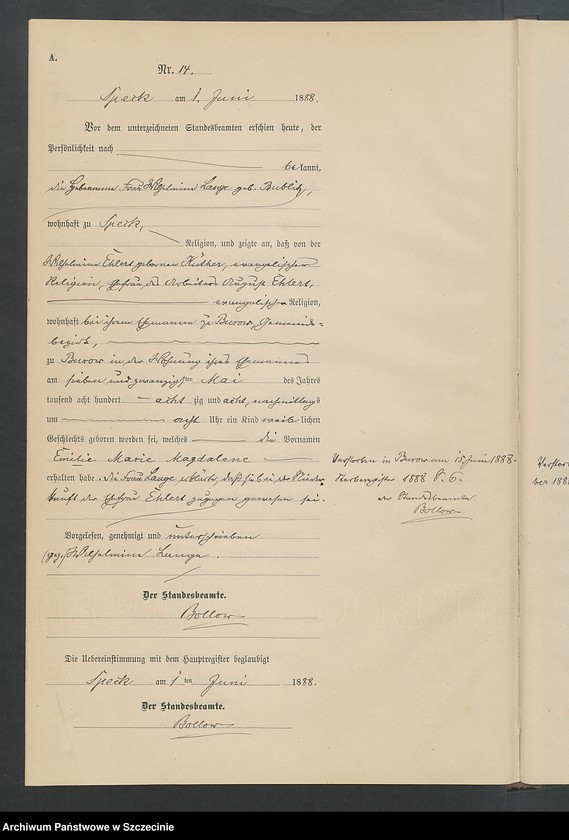 A.
Nr. 14.
Speck am 1. Juni 1888.
Vor dem unterzeichneten Standesbeamten erschien heute, der
Persönlichkeit nach
bekannt,
die Hebamme Frau Wilhelmine Lange geb. Bublitz,
wohnhaft zu Speck,
Religion, und zeigte an, daß von der
Wilhelmine Ehlert geborenen Küther, evangelischer
Religion, Ehefrau des Arbeiters August Ehlert,
evangelischer Religion,
wohnhaft bei ihrem Ehemanne zu Burow, Gemeinde-
bezirk,
zu Burow in der Wohnung ihres Ehemannes
am sieben und zwanzigsten Mai des Jahres
tausend acht hundert achtzig und acht, nachmittags
um acht Uhr ein Kind weiblichen
Geschlechts geboren worden sei, welches die Vornamen
Emilie Marie Magdalene
erhalten habe. die Frau Lange erklärte, daß sie bei der Nieder-
kunft der Ehefrau Ehlert zugegen gewesen sei.
Vorgelesen, genehmigt und unterschrieben
(gez.) Wilhelmine Lange.
Der Standesbeamte.
Bollow
Die Uebereinstimmung mit dem Hauptregister beglaubigt
Speck am 1ten Juni 1888.
Der Standesbeamte.
Bollow
Verstorben in Burow am 15. Juni 1888.
Sterberegister 1888 No. 6.
der Standesbeamte
Bollow
Verstorb
ber 188
Archiwum Państwowe w Szczecinie